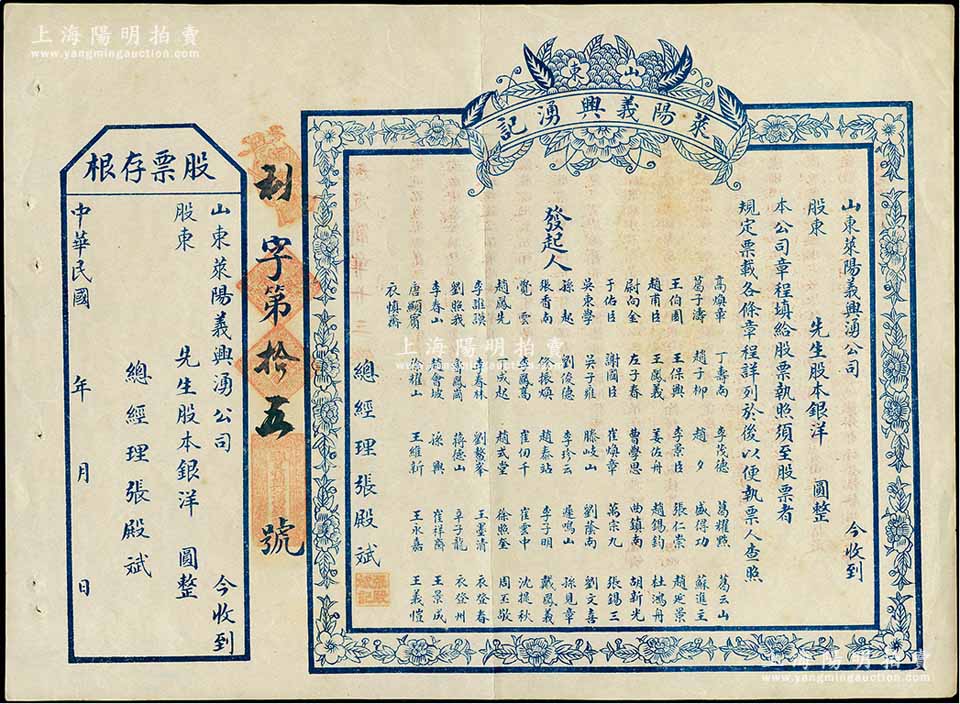 上海陽明拍賣
www.yangmingauction.com
山東
萊陽義興湧記
山東萊陽義興湧公司 今收到
股東 先生股本銀洋 圓整
本公司章程填給股票執照須至股票者
規定票載各條章程詳列於後以便執票人查照
發起人
高煥章 丁壽南 李茂德 葛耀熙 葛云山
葛子濤 趙子柳 趙夕 盛得功 蘇進王
王伯園 王保興 李景臣 張仁崇 趙延景
趙甫臣 王鳳義 姜佐舟 趙錫鈞 杜鴻舟
尉向金 左子春 曹學思 曲鎮南 胡新光
于佑臣 謝國臣 崔煥章 萬宗九 張錫三
吳東學 吳子雍 滕岐山 劉蔭南 劉文喜
孫起 劉俊德 李珍云 遲鳴山 孫見章
張香南 張振煥 趙泰站 李子明 戴鳳義
覺雲 李鳳蒿 崔伯千 崔雲中 沈提秋
趙鳳先 成起 趙式堂 徐照奎 周玉敬
李維謨 李春林 劉鰲峯 王墨清 衣登春
劉照我 鳳閣 蔣德山 辛子龍 衣登州
李春山 趙會坡 孫興 崔祥齋 王景成
唐顯賓 徐耀山 王維新 王永嘉 王義愷
衣慎齋
總經理張殿斌
張殿斌記
利字第拾五號
股票存根
山東萊陽義興湧公司 今收到
股東 先生股本銀洋 圓整
總經理張殿斌
中華民國 年 月 日
上海陽明拍賣
www.yangmingauction.com
上海陽明拍賣
www.yangmingauction.com